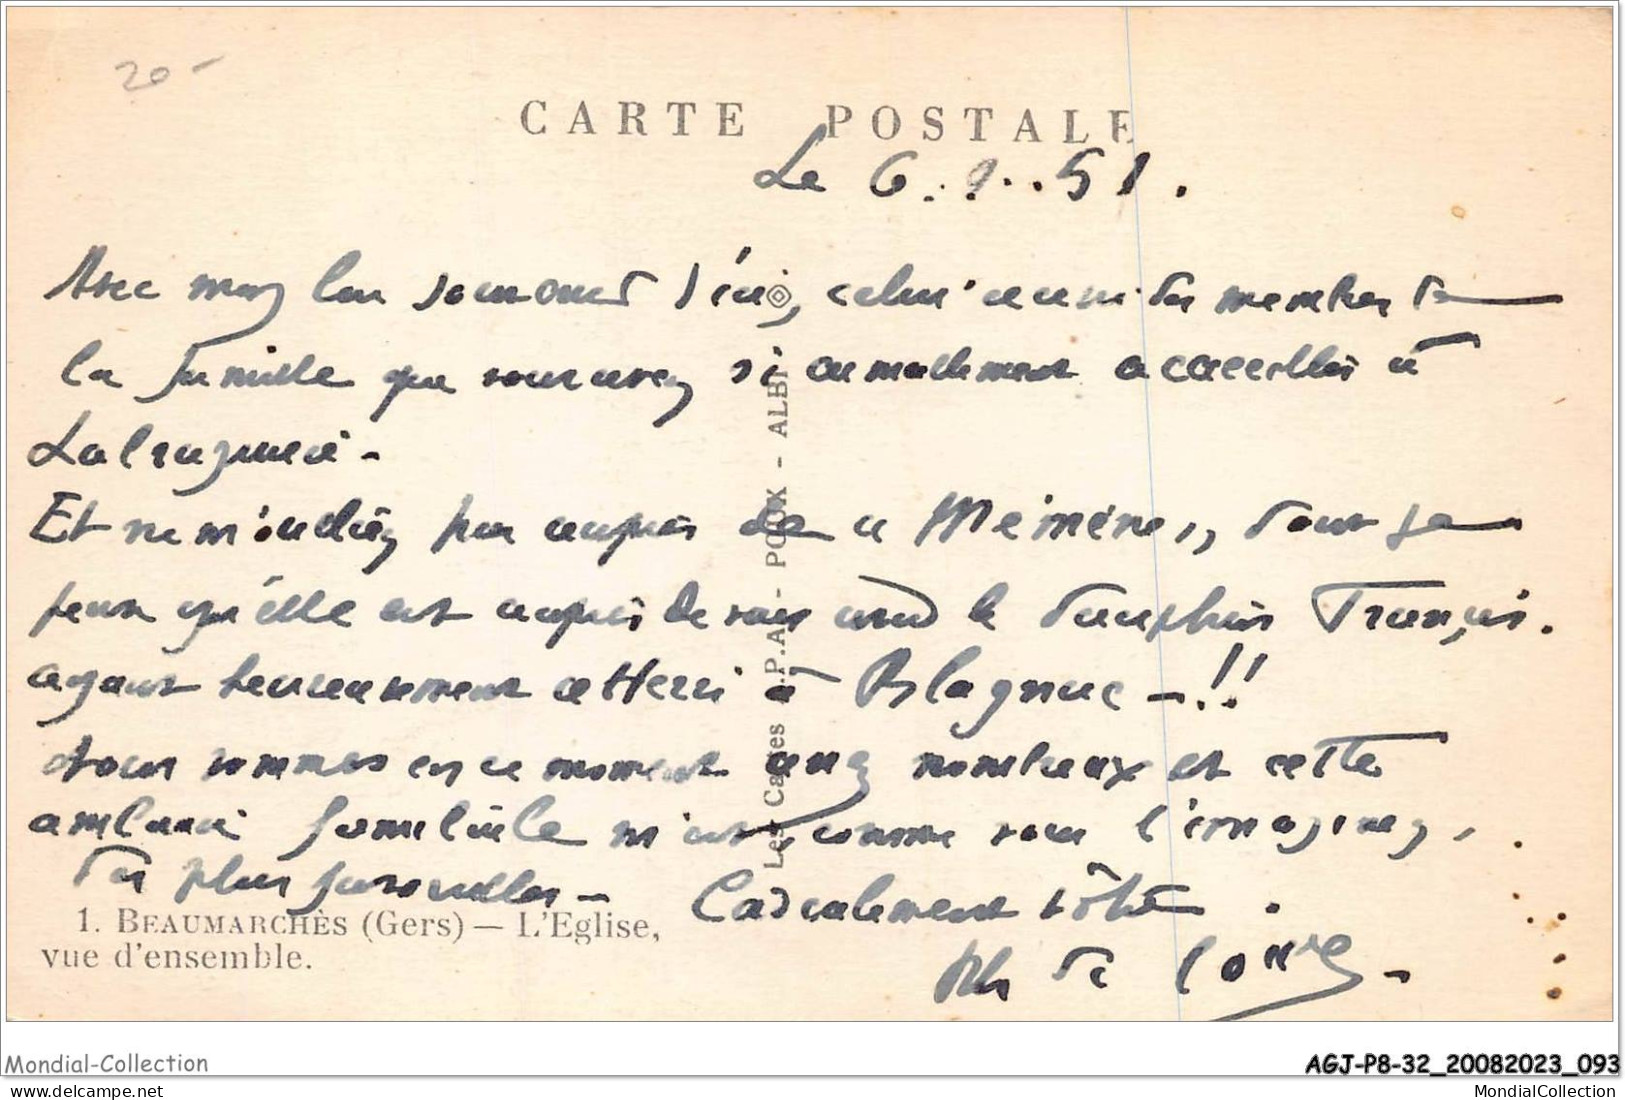 20-
CARTE POSTALE
Le 6. 9. 51.
Avec mon bon souvenir d'ici, celui aussi des membres de
la famille que vous avez si aimablement accueillis à
Et ne m'oubliez pas auprès de "Mémène", dont je
pense qu'elle est auprès de vous avec le dauphin François.
ayant heureusement atterri à Blagnac - !!
Nous sommes en ce moment assez nombreux et cette
ambiance familiale m'est, comme vous l'imaginez,
des plus
Cordialement vôtre.
de
1. BEAUMARCHÈS (Gers) — L'Eglise,
vue d'ensemble.
Les Cartes A.P.A. - POUX - ALBI
Mondial-Collection
AGJ-P8-32_20082023_093
MondialCollection